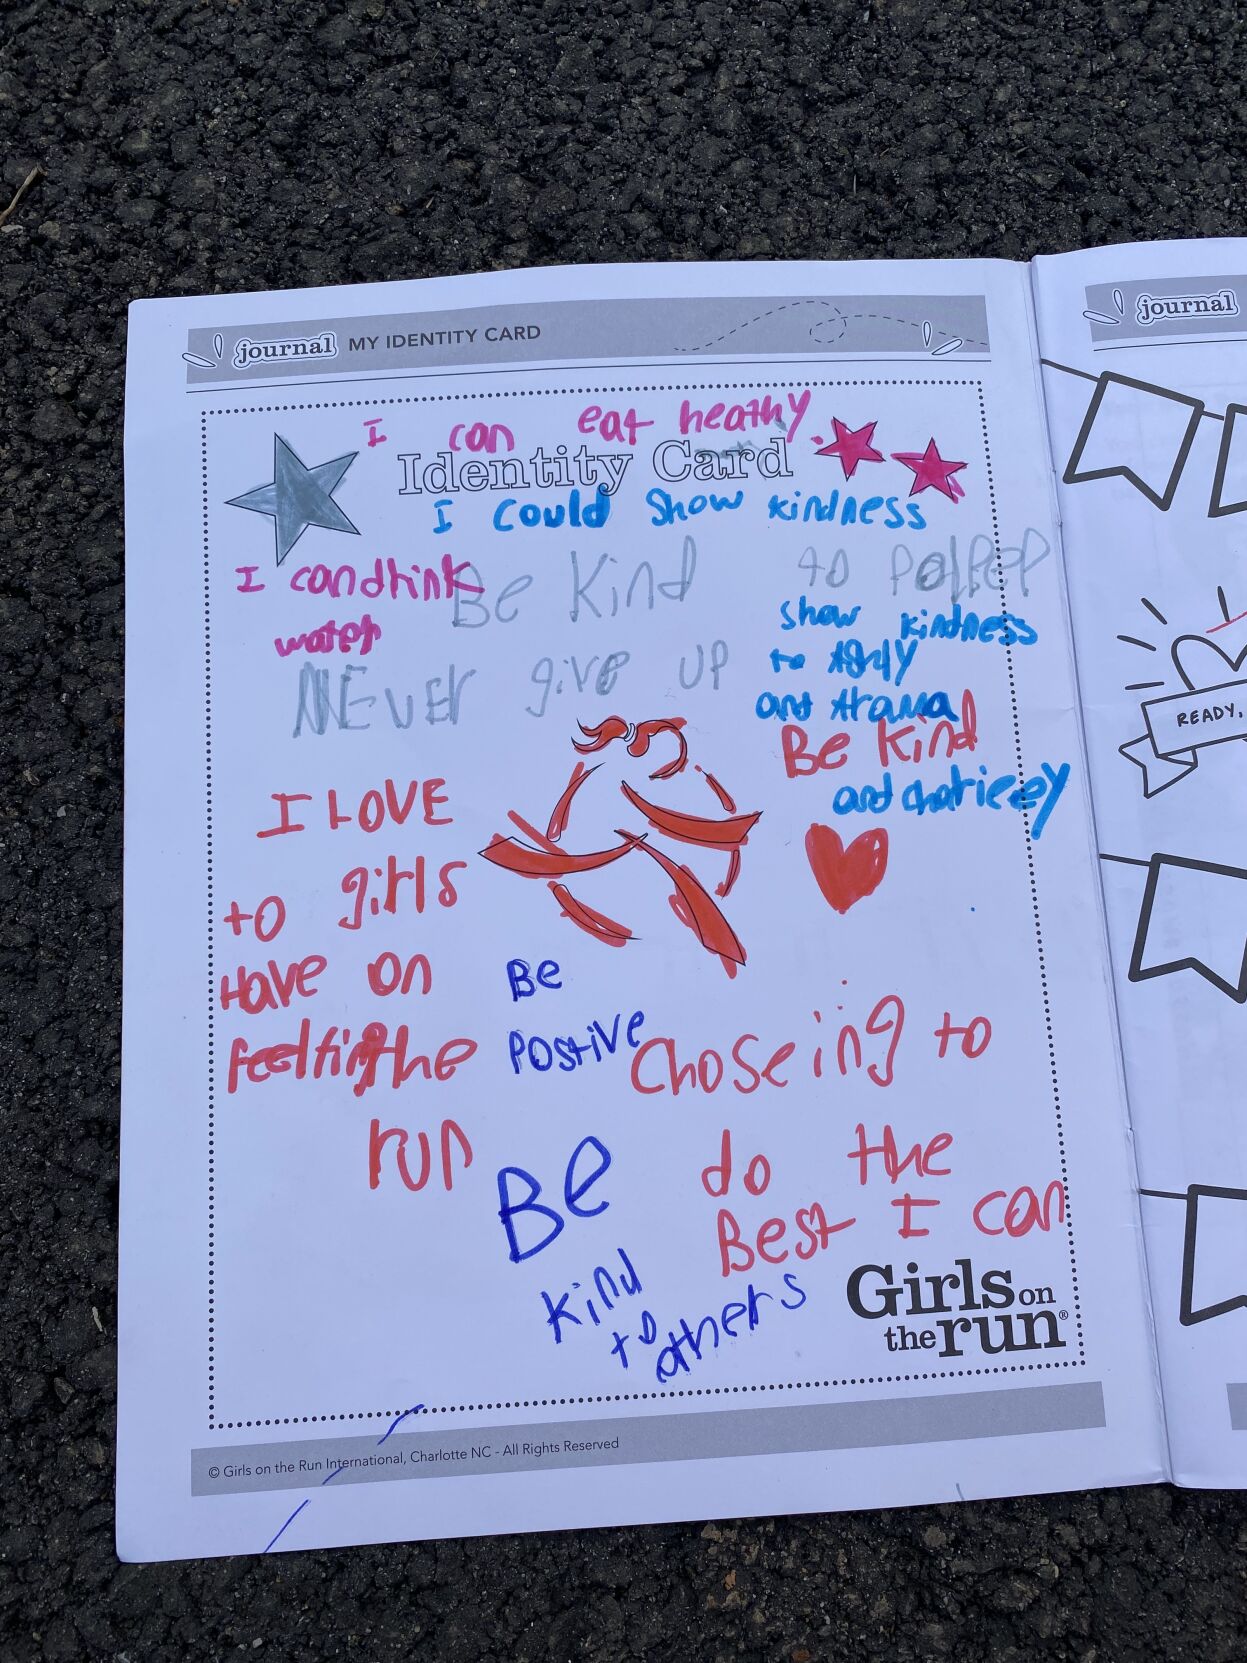 journal MY IDENTITY CARD
journal
I can eat heathy.
Identity Card
I could show kindness
I can drink
water
Be kind to
NEver give up
show kindness
to
and
Be kind
and
I LOVE
to girls
Have on
the
run
Be
Postive
Choseing to
do the
Best I can
BE
kind
to
others
READY,
Girls on
the run®
© Girls on the Run International, Charlotte NC - All Rights Reserved